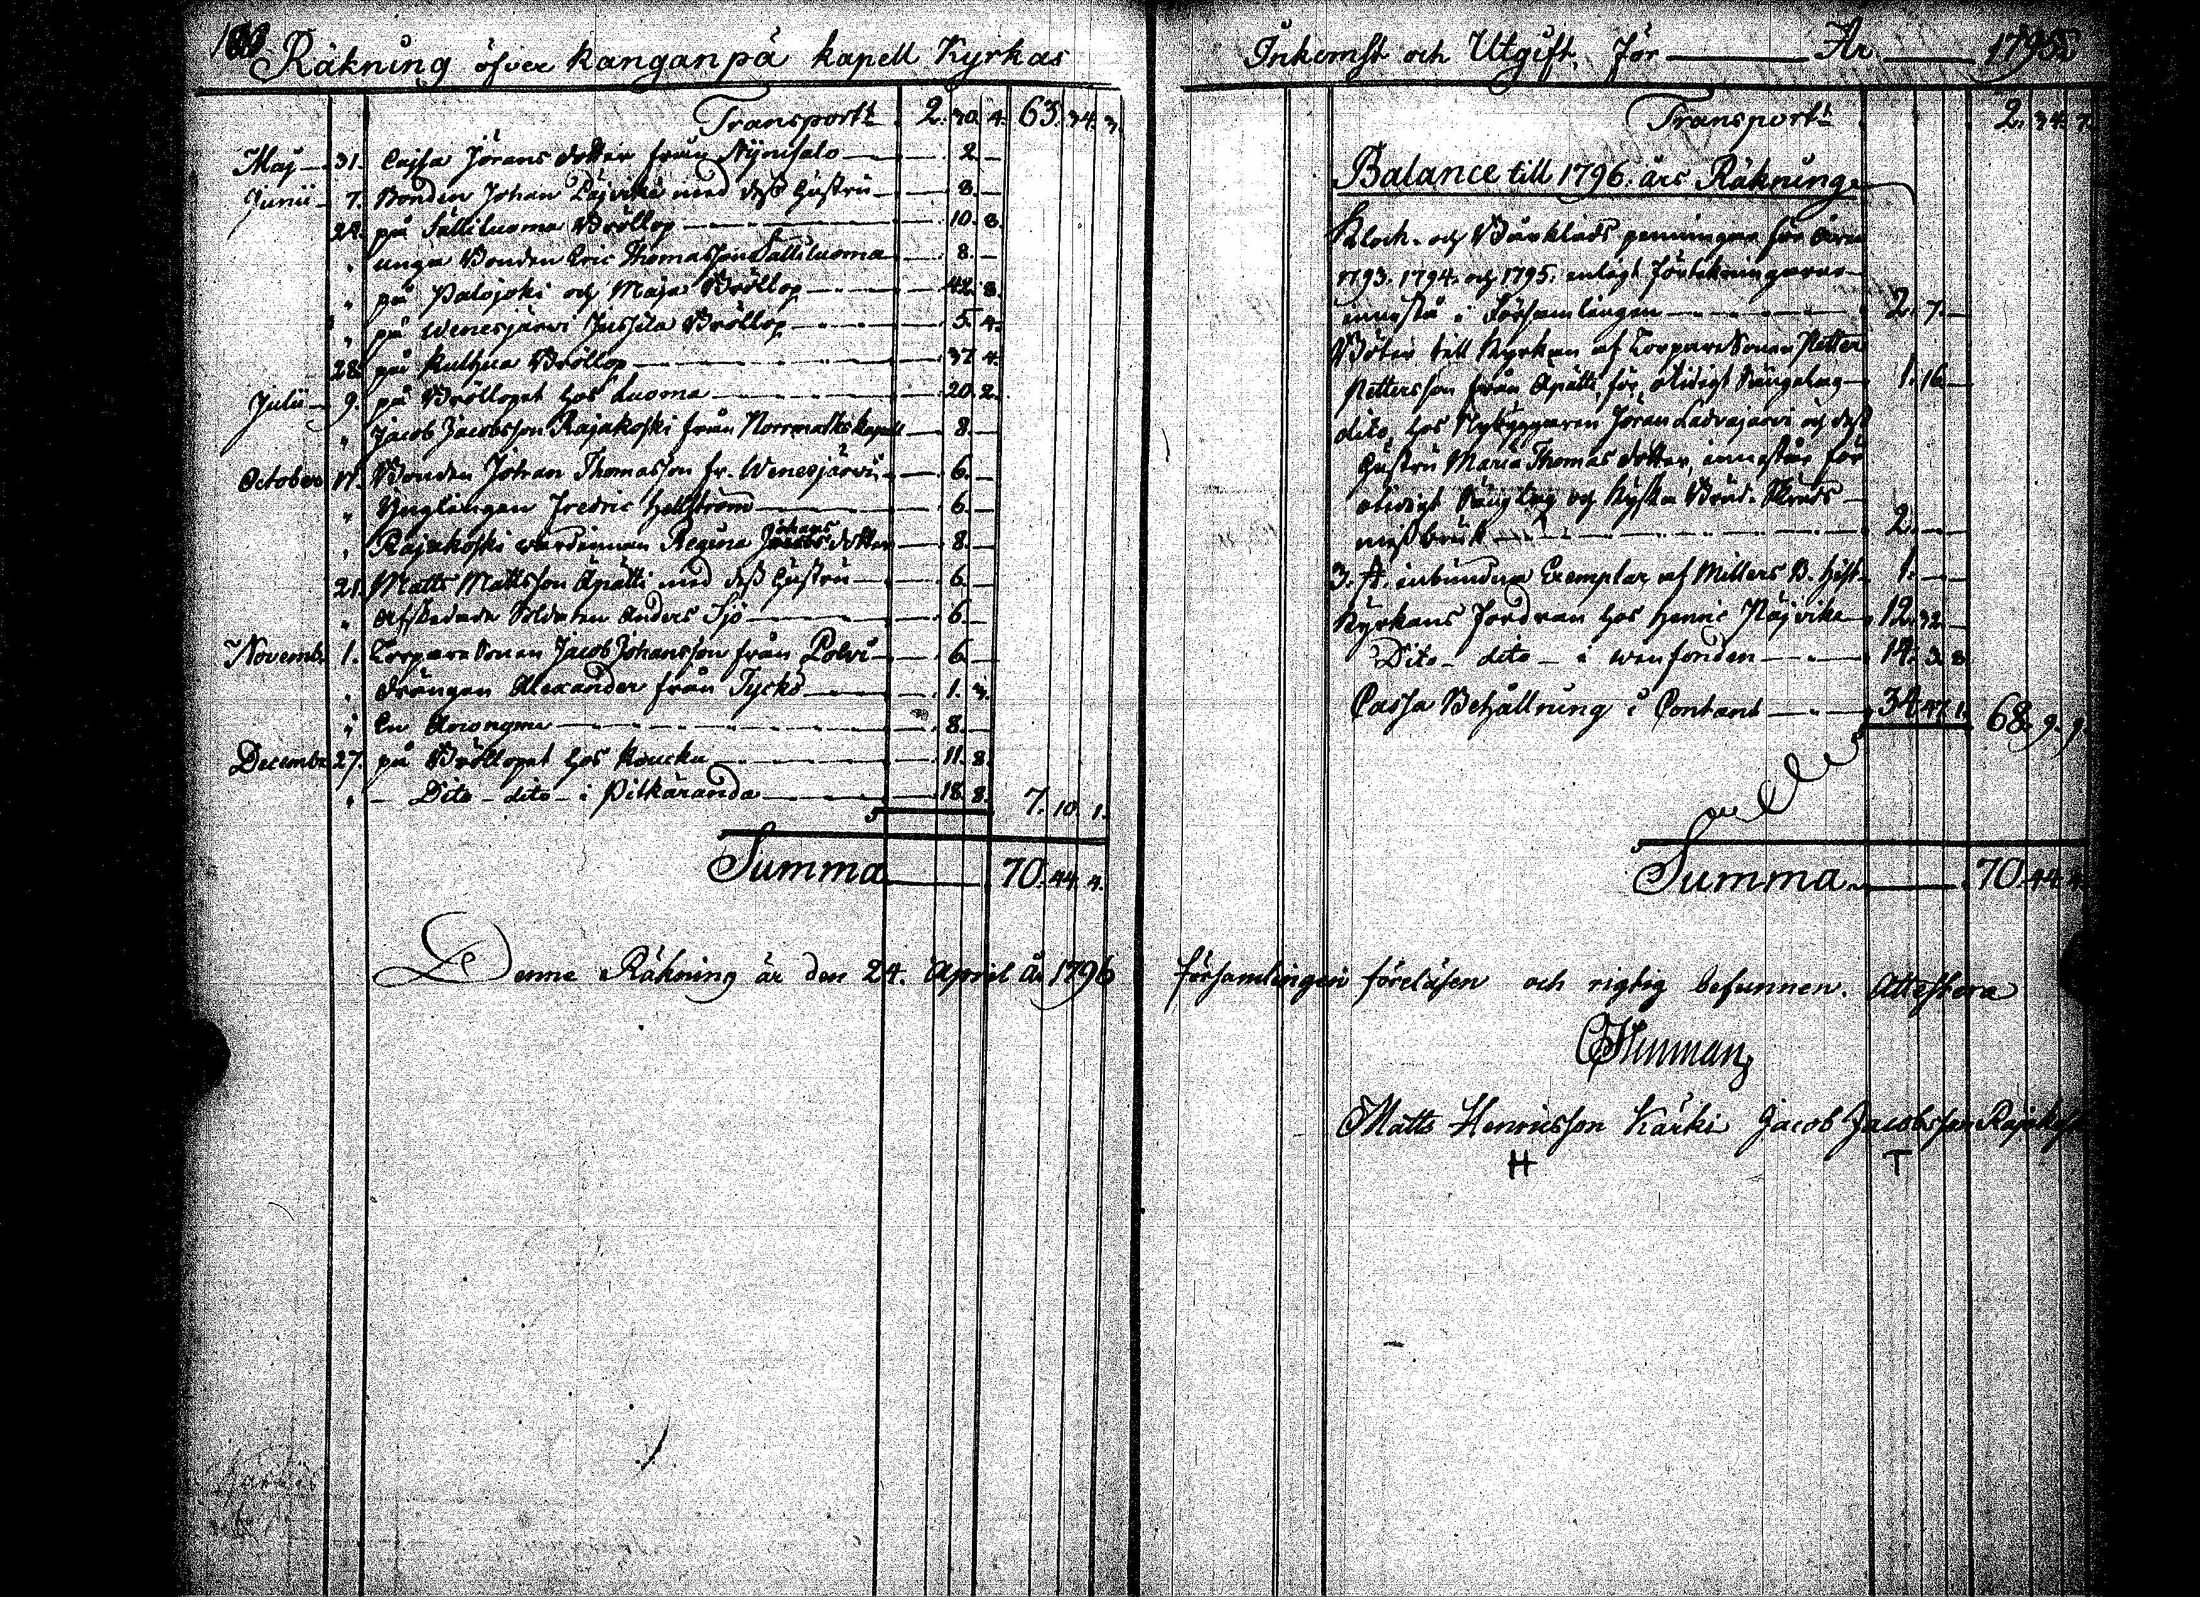 Räkning öfver Kanganpä kapell Kyrkas
Transport 2. 30. 4. 63. 34. 3.
Maj 31. Cajsa Jörans dotter från Nynsalo 2. —
Junii 7. Bonden Johan Päjvike med dess Hustru 8. —
24. på Sälliluoma Bröllop 10. 8.
" unga Bonden Eric Thomasson Sälliluoma 8. —
" på Palojoki och Maja Bröllop 42. 8.
" på Wenesjärwi Jussila Bröllop 5. 4.
28. på Bröllop 37. 4.
Julii 9. på Bröllopet hos Luoma 20. 2.
" Jacob Jacobsson Rajakoski från Norrmarks kapell 8. —
October 17. Bonden Johan Thomasson fr. Wenesjärwi 6. —
" Ynglingen Fredric Hellström 6. —
" Rajakoski wärdinnan Regina Johans dotter 8. —
21. Matts Mattsson Äpätti med dess Hustru 6. —
" Afskedade Soldaten Anders Sjö 6. —
Novemb. 1. Torpare Sonen Jacob Johansson från Polvi 6. —
" drängen Alexander från Tycko 1. 3.
" En Anonyme 8. —
Decemb. 27. på Bröllopet hos Koucku 11. 8.
" — Dito — dito — i Pitkäranda 18. 8. 7. 10. 1.
Summa 70. 44. 4.
Denne Räkning är den 24. April År 1796
Inkomst och Utgift. för År 1795
Transport 2. 34. 7.
Balance till 1796. års Räkning
Klock- och Bårkläds penningar för åren
1793. 1794. och 1795. enligt förtekningarne
innestå i Församlingen 2. 7. —
Böter till Kyrkan af Torpare Sonen Petter
Pettersson från Äpätti, för otidigt Sängelag 1. 16. —
dito, hos Nybyggaren Jöran Ladvajarvi och dess
Hustru Maria Thomas dotter, innestår för
otidigt Sänglag och Kyska Brud Skruds
missbruk 2. — —
3. st. inbundna Exemplar af Millers B. Hist. 1. — —
Kyrkans fordran hos Henric Näjvike 12. 32. —
Dito — dito — i winfonden 14. 3. 8.
Cassa Behållning i Contant 34. 47. 1. 68. 9. 9.
Summa 70. 44. 4.
församlingen föreläsen och rigtig befunnen. Attestera
Matts Henricsson Kärki Jacob Jacobsson
H T